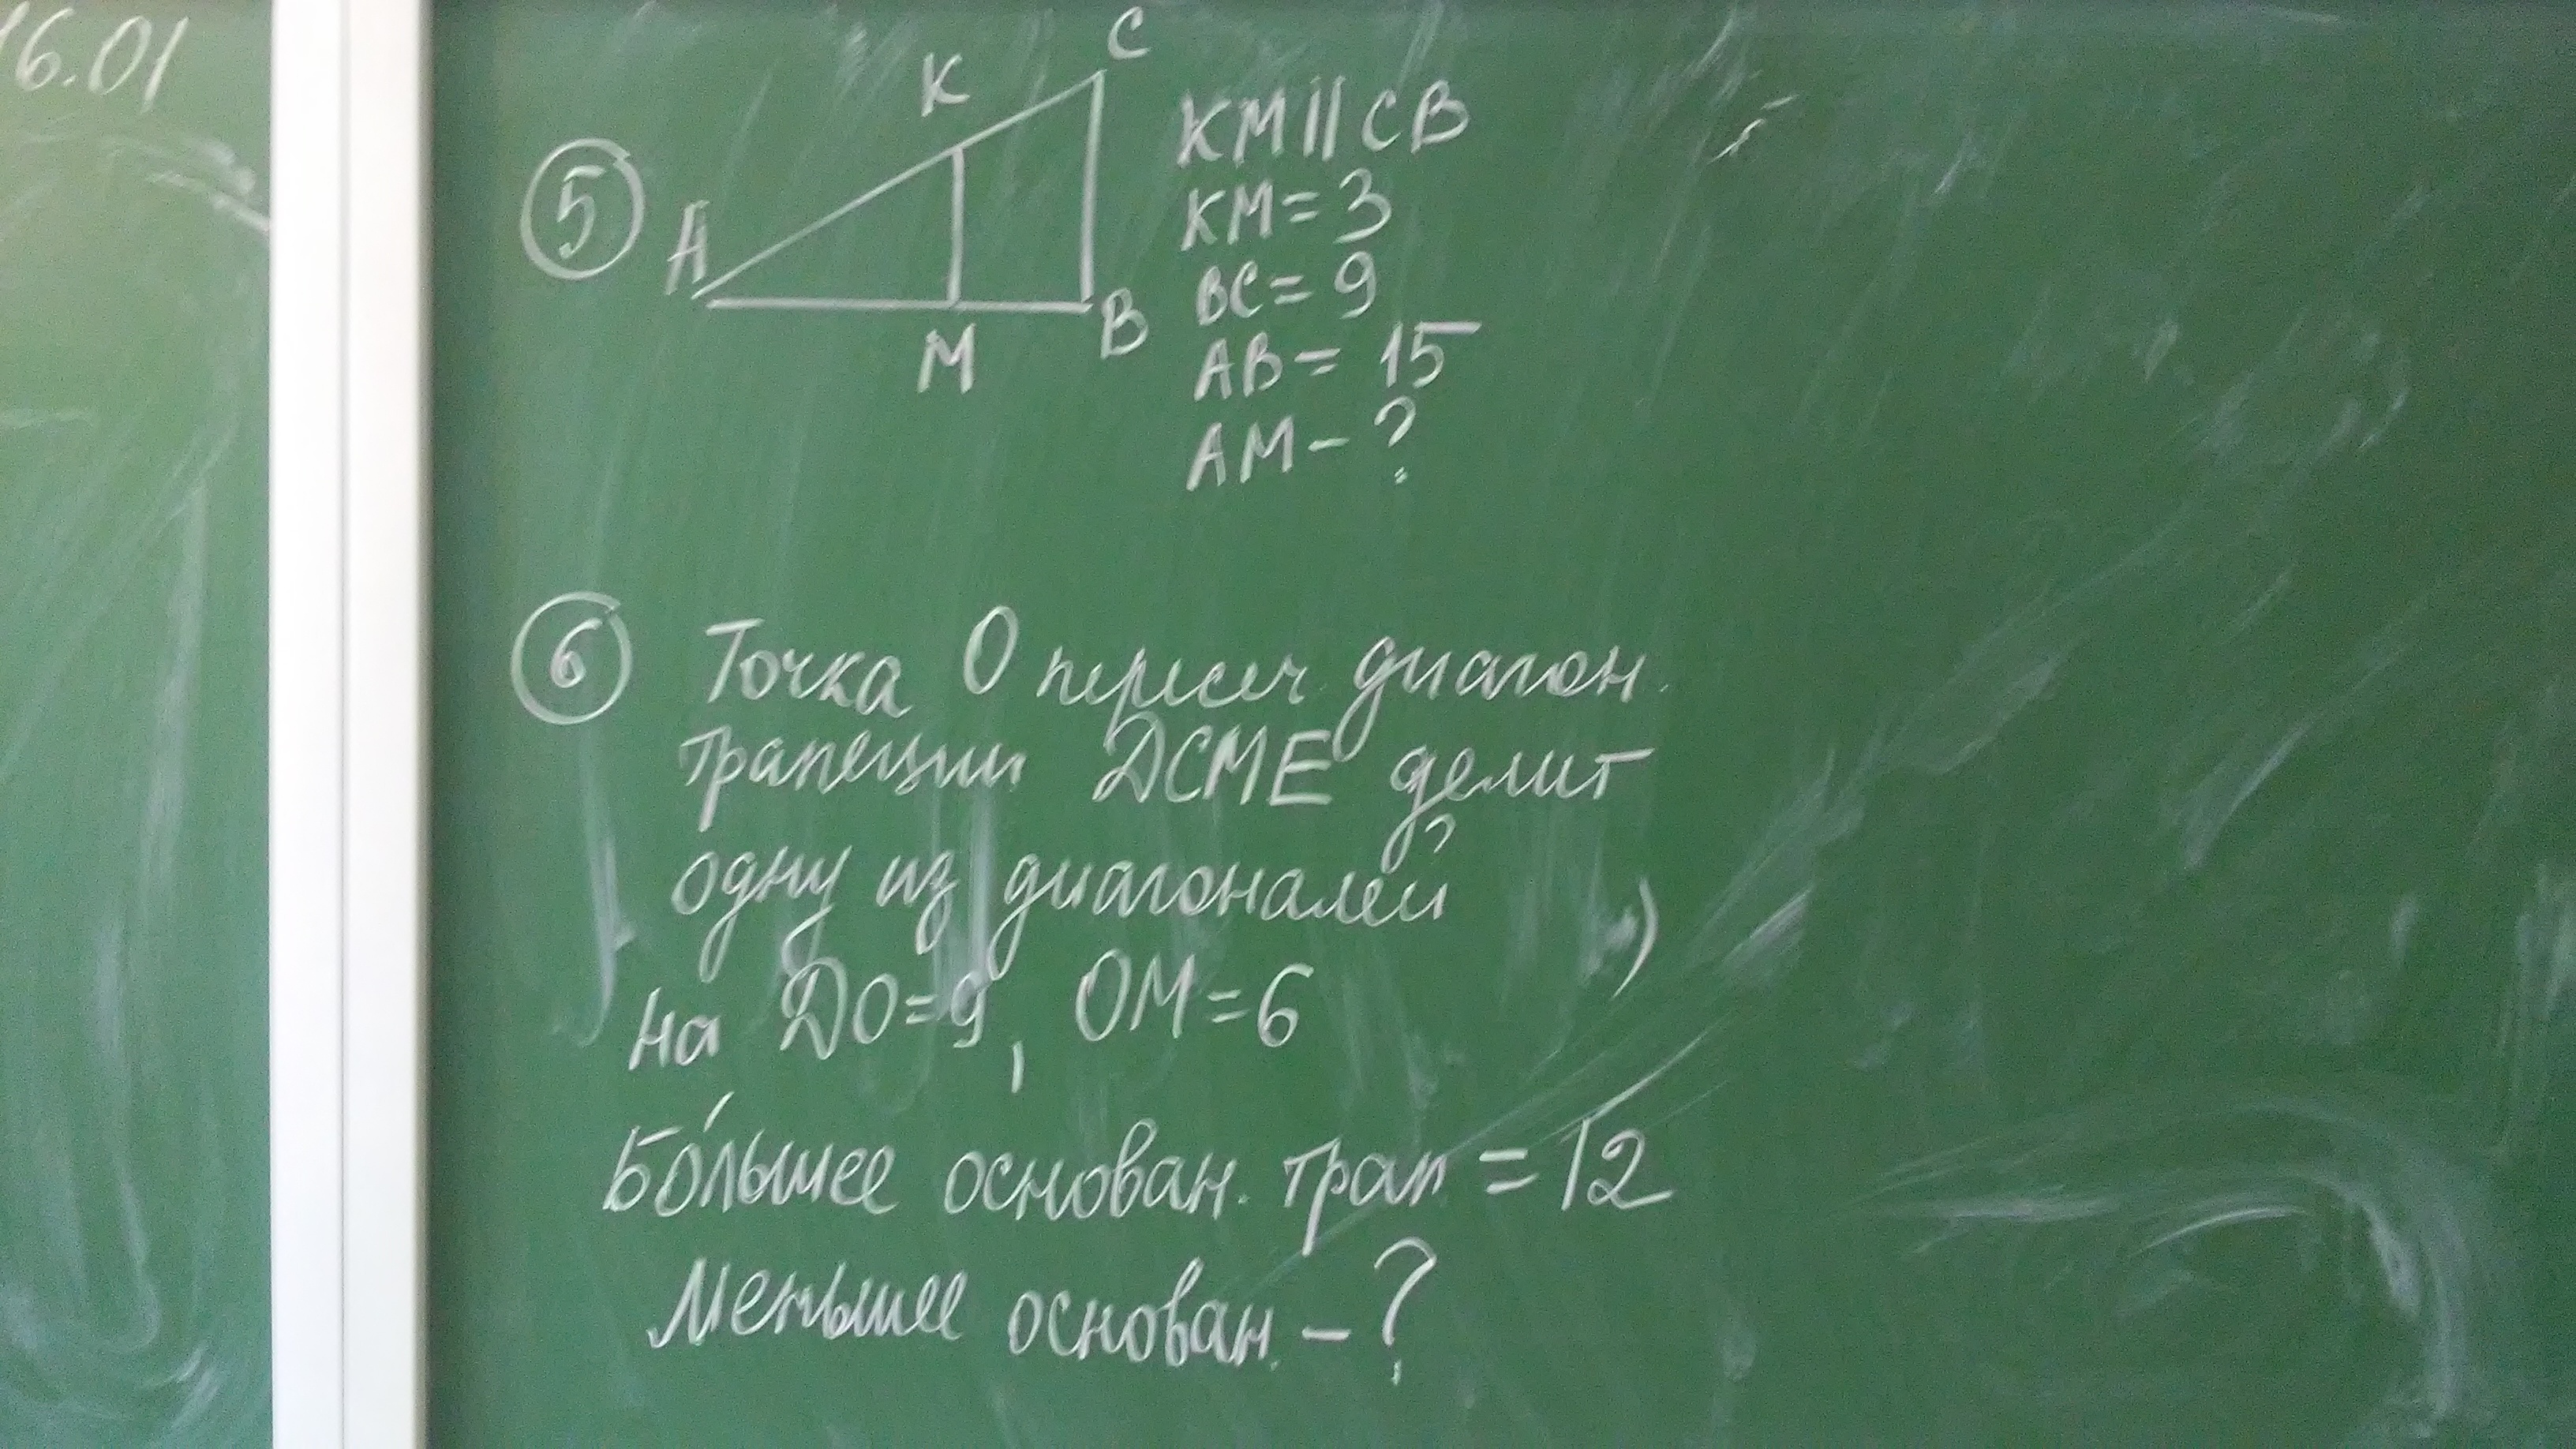 16.01
5
A
K
C
M
B
KM||CB
KM=3
BC=9
AB=15
AM-?
6
Точка О пересеч диагон.
трапеции ДСМЕ делит
одну из диагоналей
на ДО=9, ОМ=6
Большее основан. трап=12
Меньшее основан. - ?